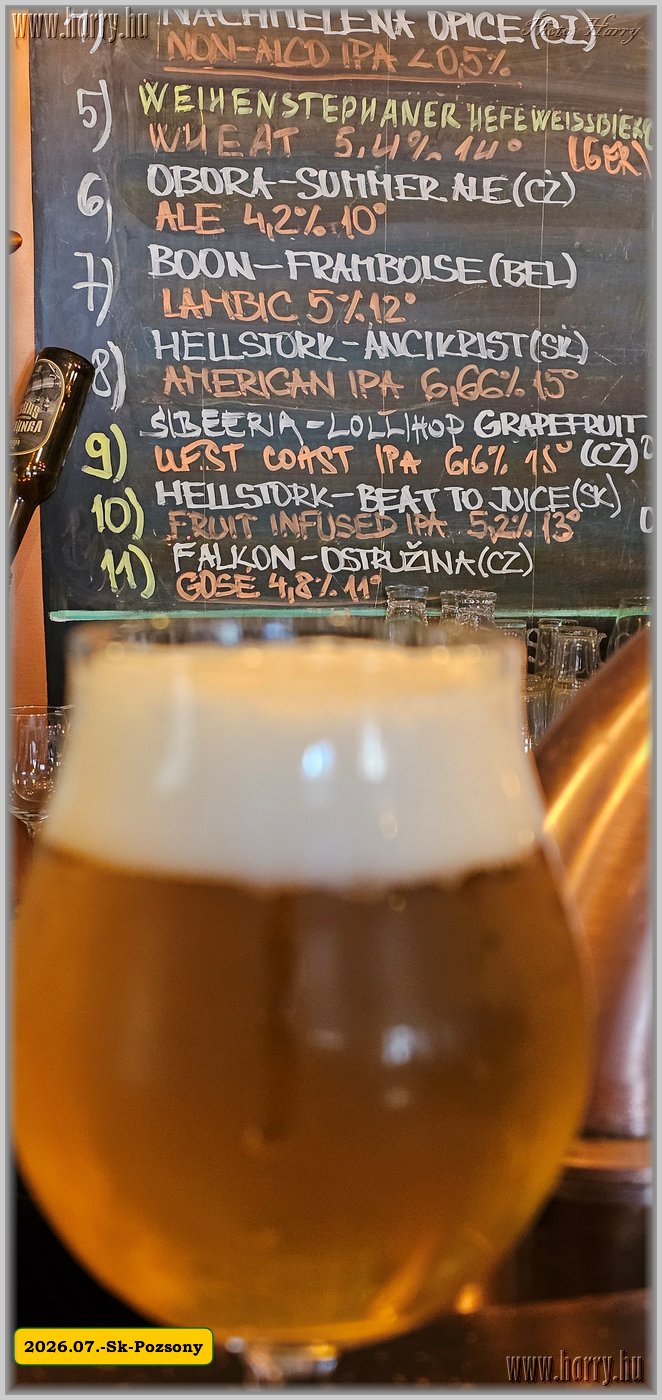 www.horry.hu
Photo: Harry
NACHMELENÁ OPICE (CZ)
NON-ALCO IPA <0,5%
5) WEIHENSTEPHANER HEFEWEISSBIER
WHEAT 5,4% 14° (GER)
6) OBORA-SUMMER ALE (CZ)
ALE 4,2% 10°
7) BOON-FRAMBOISE (BEL)
LAMBIC 5% 12°
8) HELLSTORK-ANCIKRIST (SK)
AMERICAN IPA 6,66% 15°
9) SIBEERIA-LOLLIHOP GRAPEFRUIT
WEST COAST IPA 6,6% 15° (CZ)
10) HELLSTORK-BEAT TO JUICE (SK)
FRUIT INFUSED IPA 5,2% 13°
11) FALKON-OSTRUŽINA (CZ)
GOSE 4,8% 11°
2026.07.-Sk-Pozsony
www.horry.hu